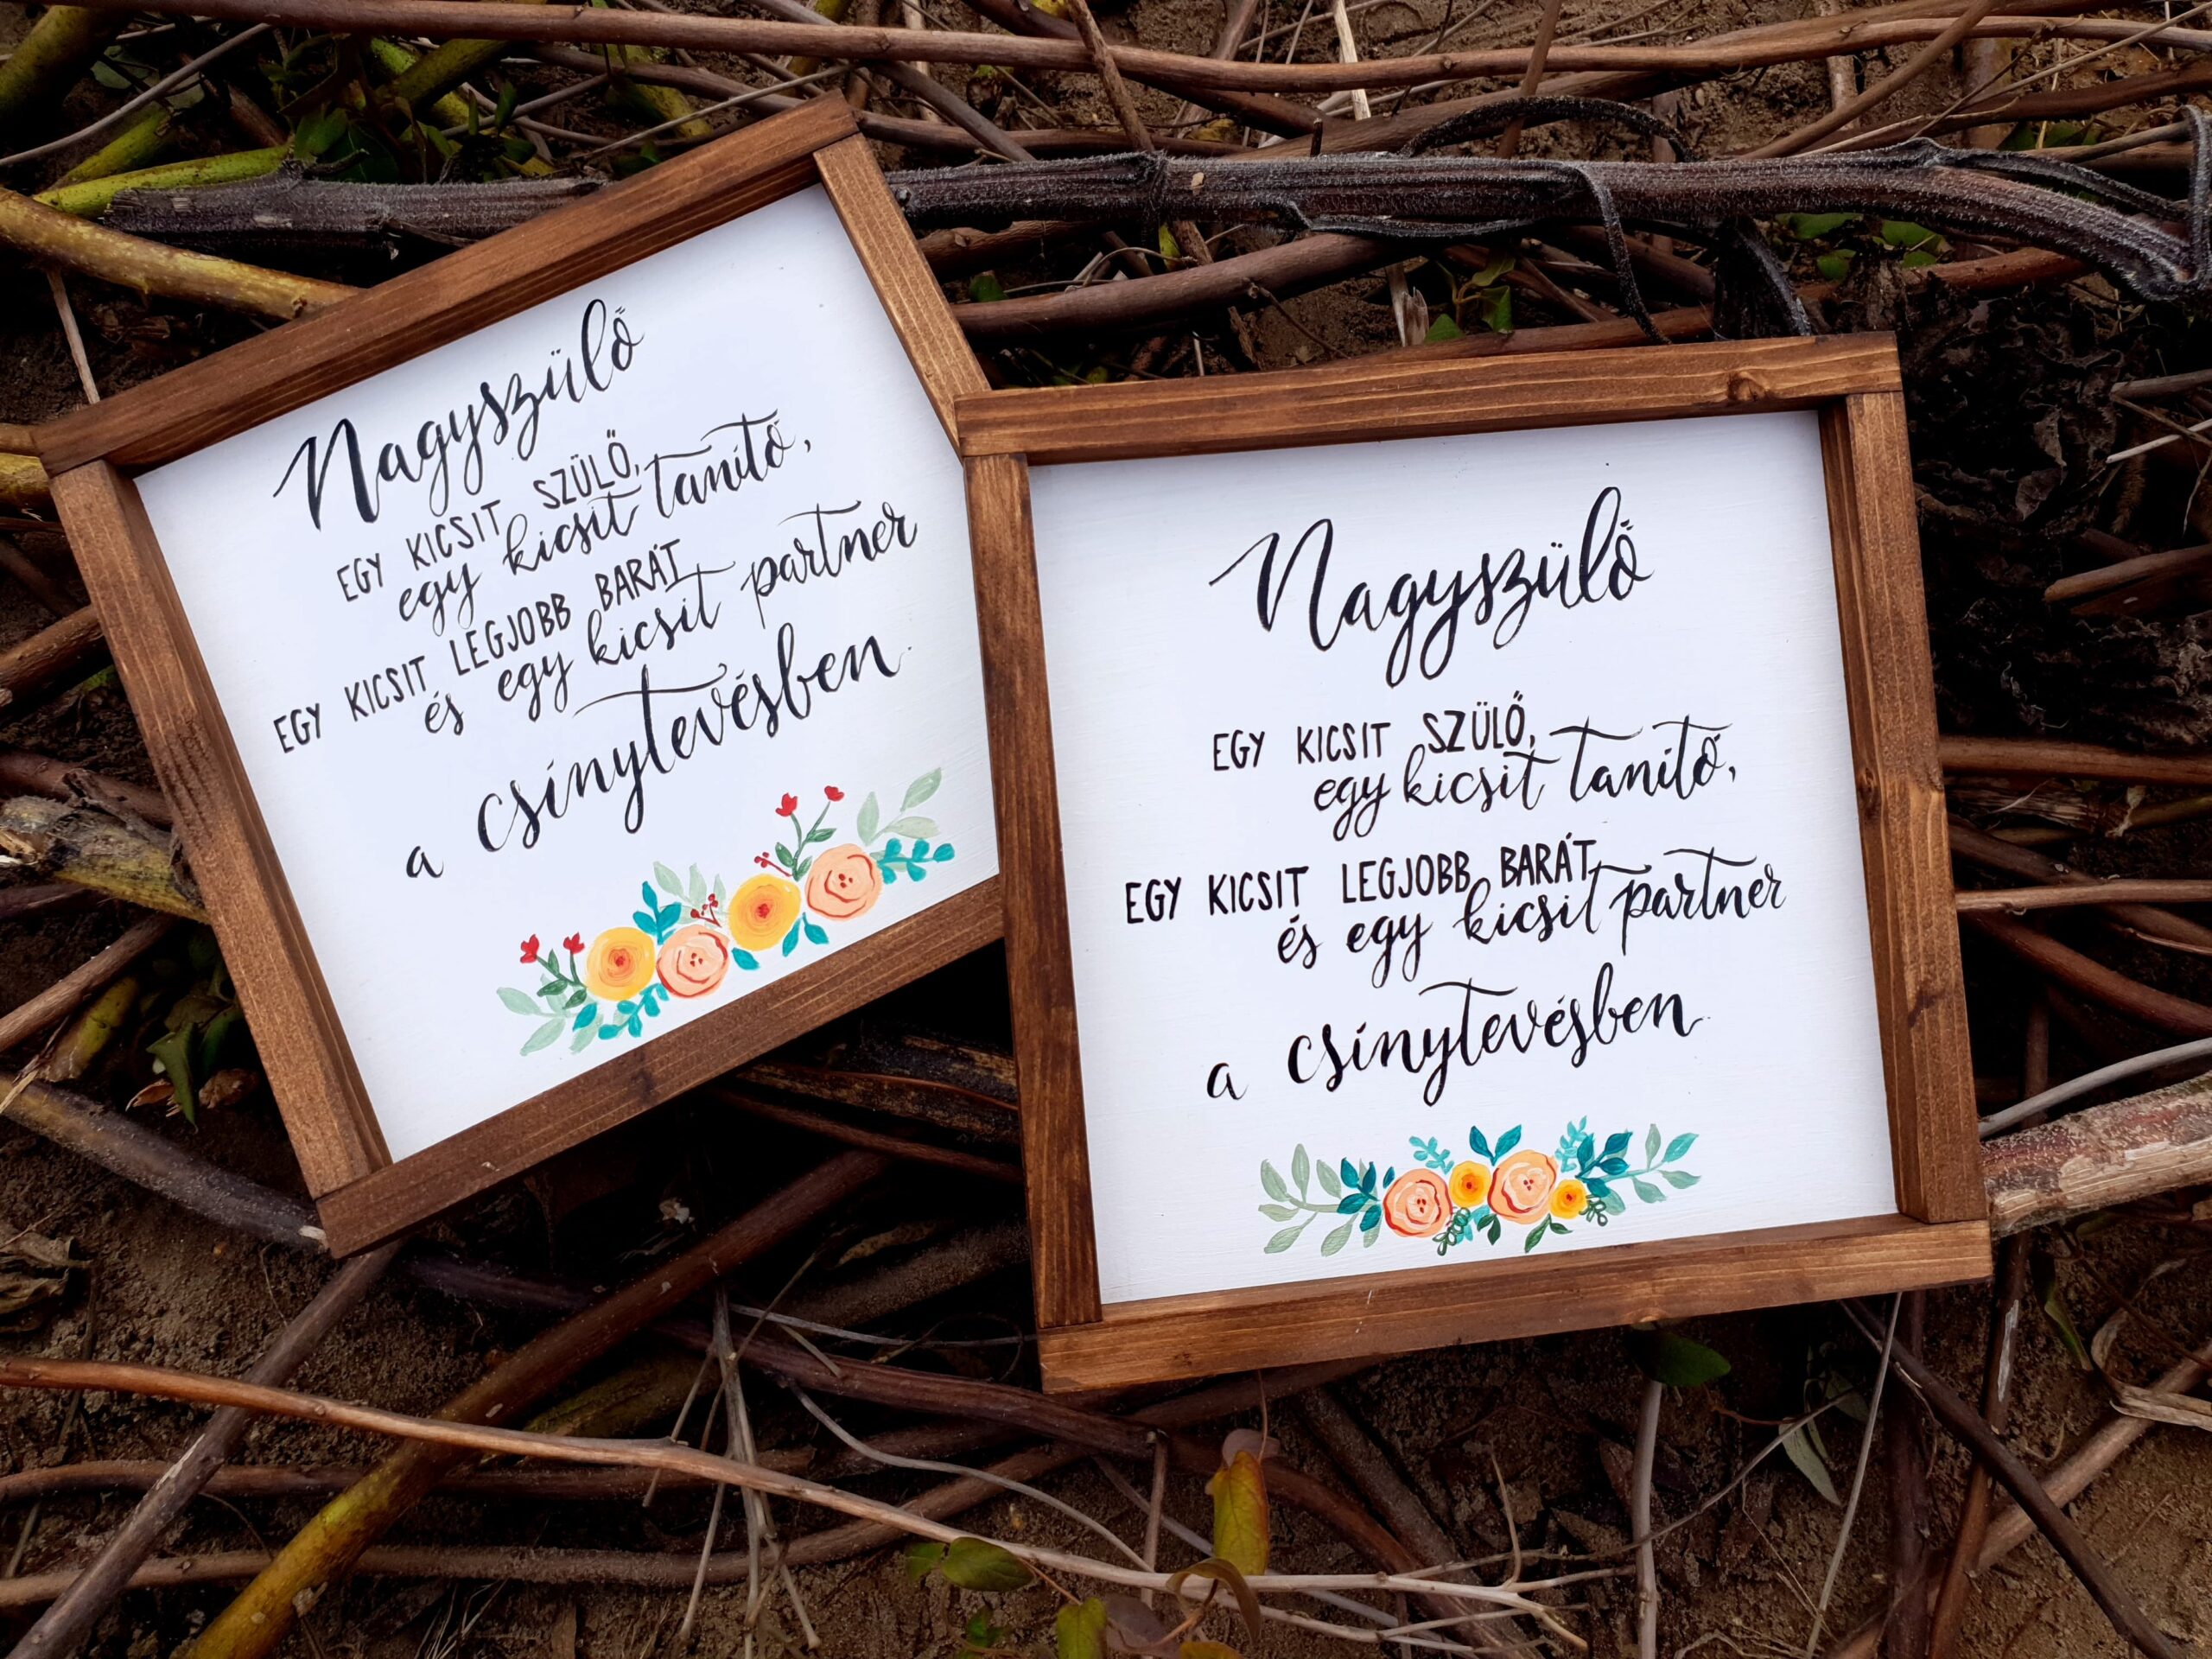 Nagyszülő
EGY KICSIT SZÜLŐ,
egy kicsit tanító,
EGY KICSIT LEGJOBB BARÁT
és egy kicsit partner
a csínytevésben.
Nagyszülő
EGY KICSIT SZÜLŐ,
egy kicsit tanító,
EGY KICSIT LEGJOBB BARÁT
és egy kicsit partner
a csínytevésben.